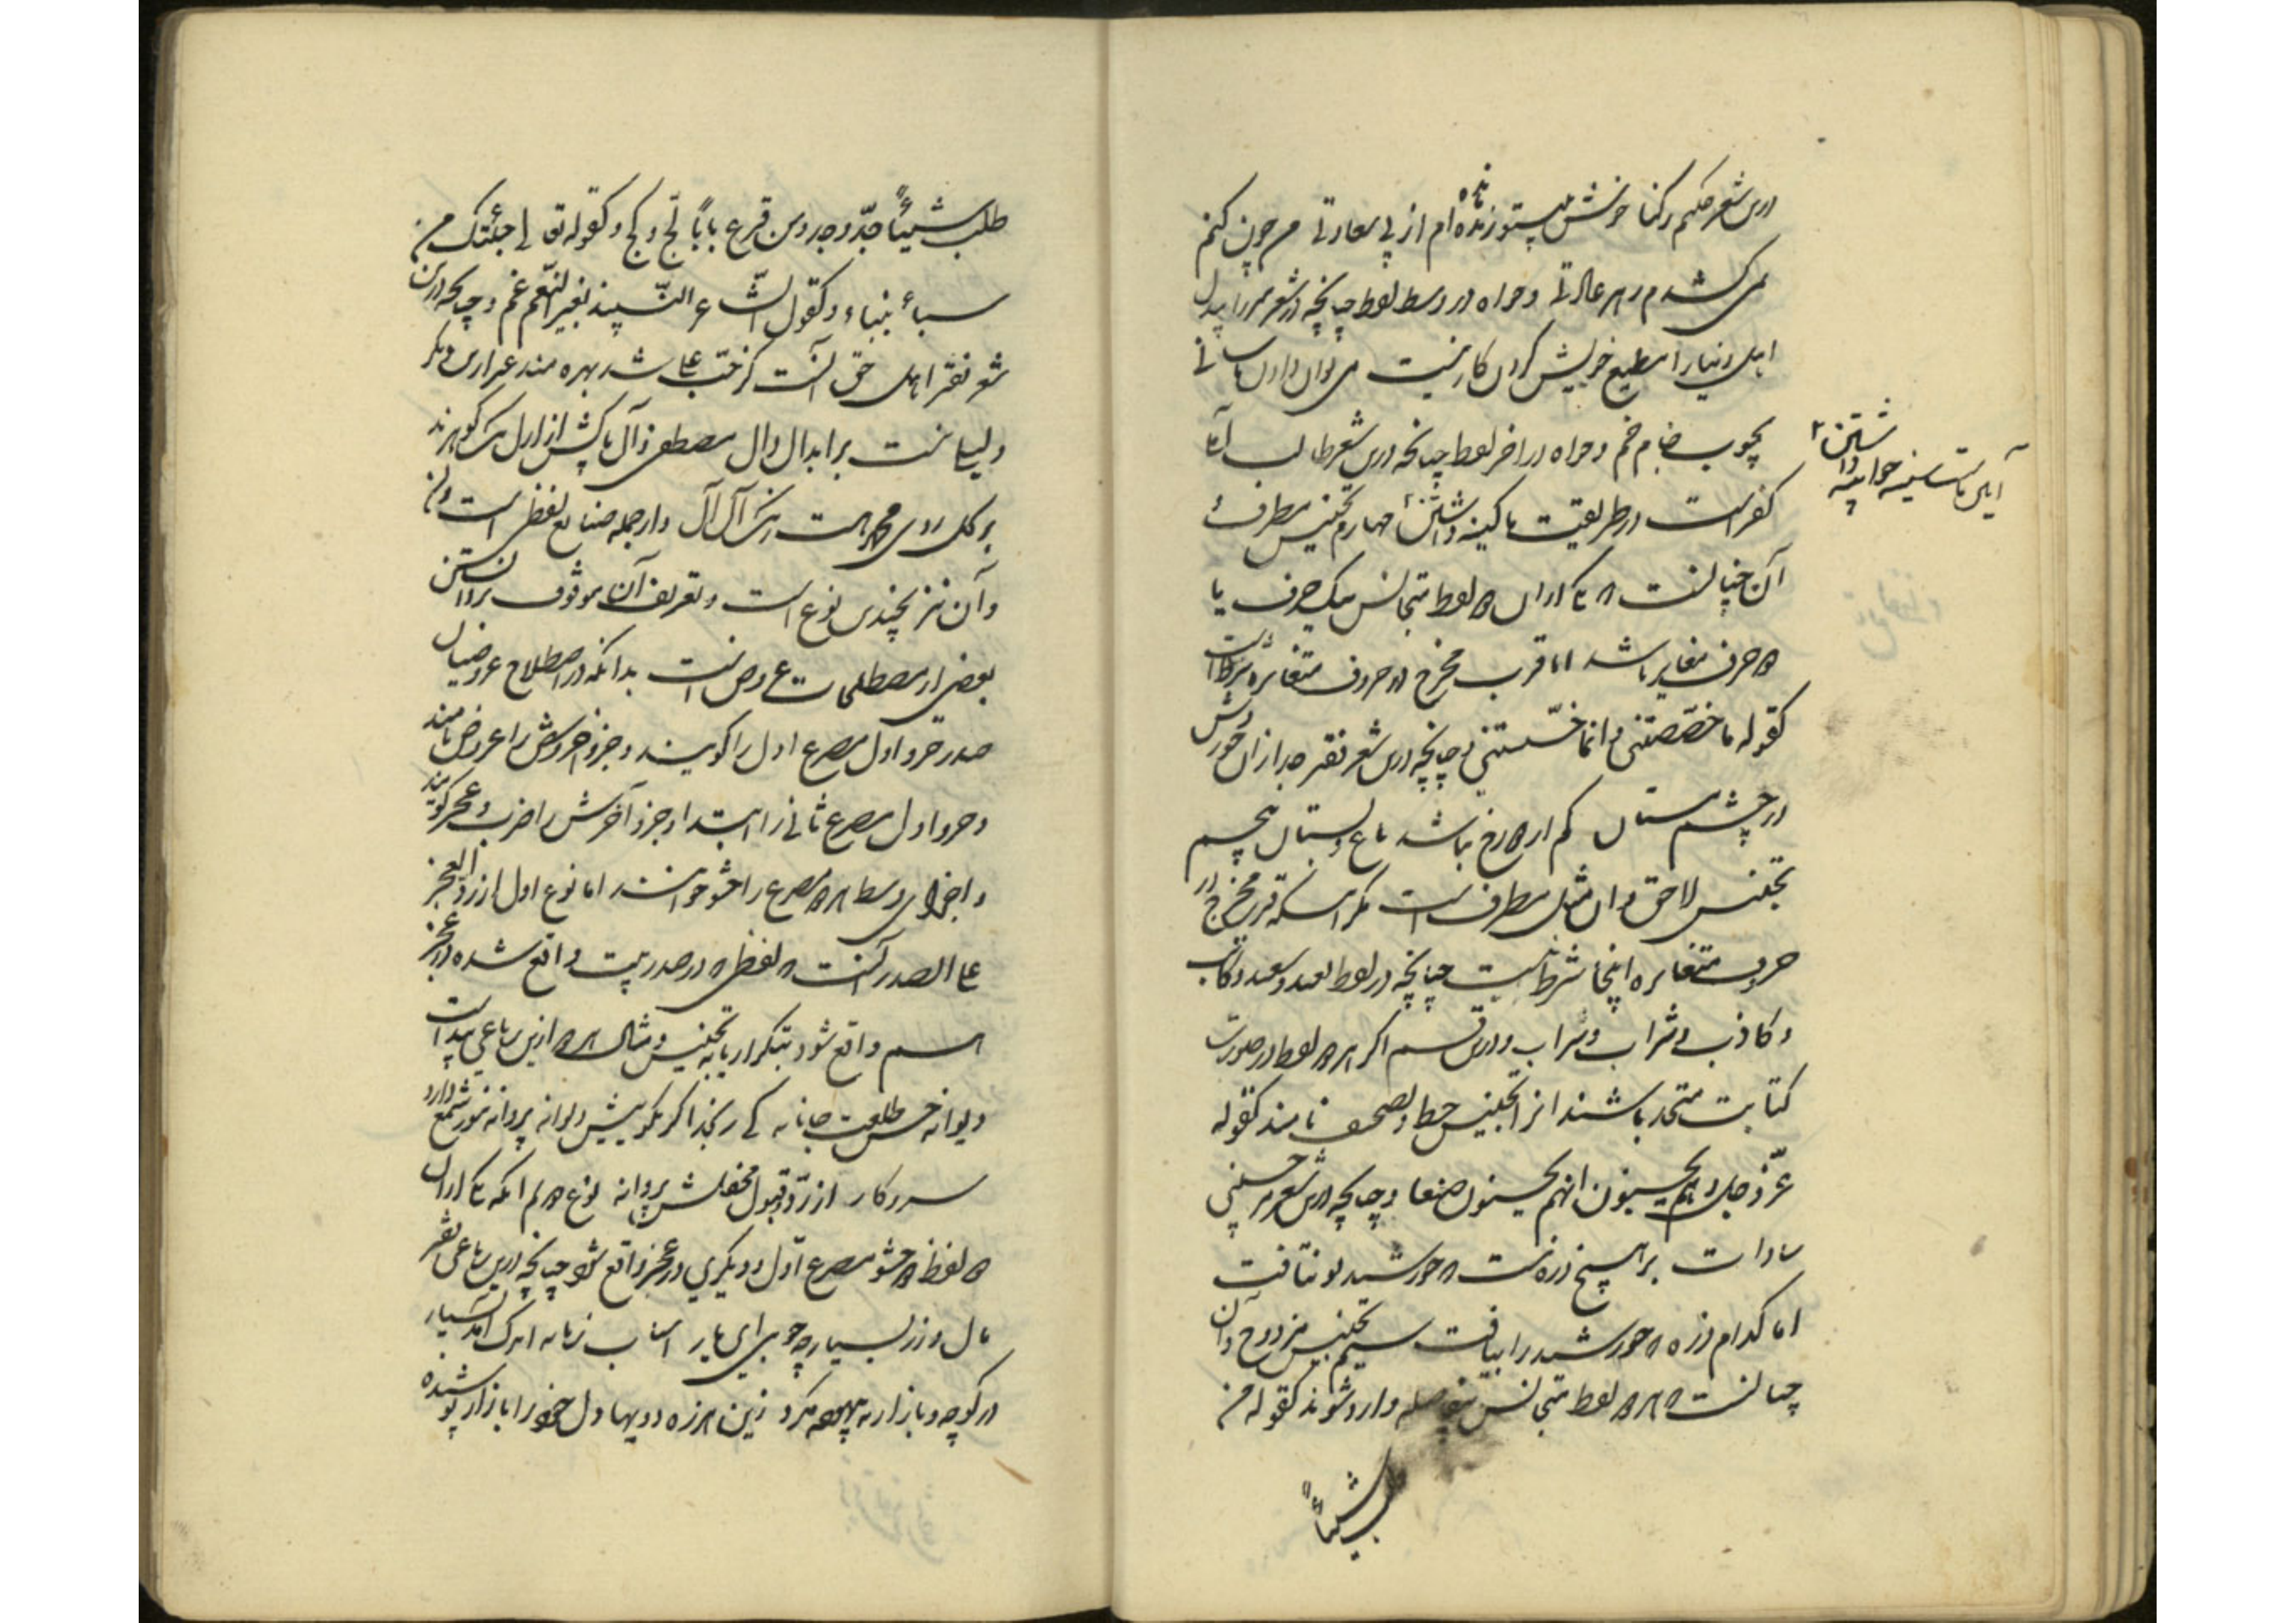 درین شعر حکیم رکنا خوش نیستم و زنده‌ام از بی سعادتی مر چون کنم
نمی کشدم مر هر عادتی و خواه در وسط لفظ چنانچه در شعر میرزا بیدل
اهل دنیا را مطیع خویش کردن کار نیست می توان دادن باسانی
بچوب خام خم و خواه در آخر لفظ چنانچه درین شعر طالب آملی
کفر است در طریقت ما کینه داشتن چهارم تجنیس مطرف
آیین ماست سینه چو آیینه داشتن
آن چنانست که در ارکان دو لفظ متجانس یک حرف یا
دو حرف مغایر باشد اما قرب مخرج در حروف متغایره شرط است
کقوله ما خصصتنی و انما خسستنی و چنانچه درین شعر فقیر جدا زان حور وش
در چشم مستان کم از دوزخ نباشد باغ و بستان پنجم
تجنیس لاحق و آن مثل مطرف است مگر اینکه قرب مخرج در
حروف متغایره اینجا شرط نیست چنانچه در لفظ بعید و سعید و کاتب
و کاذب و شراب و سراب و درین قسم اگر هر دو لفظ در صورت
کتابت متحد باشند آنرا تجنیس خط و تصحیف نامند کقوله
عزّ و جل و هم یحسبون انهم یحسنون صنعا و چنانچه درین شعر میر حسینی
سادات بر هیچ ذره نیست که خورشید تو نتافت
اما کدام ذره که خورشید را بیافت ششم تجنیس مزدوج و آن
چنانست که هر دو لفظ متجانس متصله وارد شوند کقوله من
طلب شیئاً
طلب شیئاً جدّ وجد و من قرع باباً لجّ ولج و کقوله تعالی جئتک من
سباء بنباء و کقول الشاعر النبیذ بغیر النغم غم و چنانچه درین
شعر فقیر اهل حق آنست کز حبّ علی شد بهره مند غیر ازین دیگر
ولیلی نیست بر ابدال دال مصطفی و آل پاکش از ازل یک گوهرند
بر گل روی محمد هست رنگ آل آل و از جمله صنایع لفظی است
و آن نیز بچندین نوع است و تعریف آن موقوف بر دانستن
بعضی از مصطلحات عروض است بدانکه در اصطلاح عروضیان
صدر جزو اول مصرع اول را گویند و جزو آخر وش را عروض نامند
و جزو اول مصرع ثانی را ابتدا و جزو آخرش را ضرب و عجز گویند
و اجزای وسط هر دو مصرع را حشو خوانند اما نوع اول از رد العجز
علی الصدر آنست که لفظی که در صدر بیت واقع شده در عجز
هم واقع شود بتکرار یا به تجنیس و مثال هر دو ازین رباعی پیداست
دیوانه حسن طلعت جانانه کی رنجد اگر بگویمش دیوانه پروانه شمع دارد
سر و کار از ردّ و قبول محفلش پروانه نوع دوم آنکه یکی از آن
دو لفظ در حشو مصرع اول و دیگری در عجز واقع شود چنانچه درین رباعی فقیر
مال و زر بسیار چه جویی ای یار اسباب زمانه اندک آمد بسیار
در کوچه و بازار به بیهوده مگرد زین هرزه دویها دل خود را باز آر پوشیده